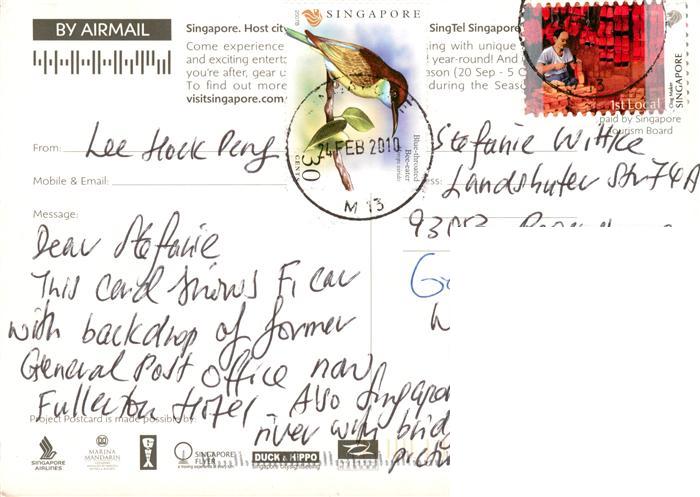 BY AIRMAIL
Singapore. Host cit
SingTel Singapore
Come experience
ing with unique
and exciting entert
year-round! And
you're after, gear u
ason (20 Sep - 5 O
To find out more
during the Seas
visitsingapore.com
paid by Singapore
ourism Board
SINGAPORE
2007B
Blue-throated
Bee-eater
30
CENTS
24 FEB 2010
M 13
Clog Maker
SINGAPORE
1st Local
From: Lee Hock Peng
Mobile & Email:
Stefanie Wittke
Landshuter Str 74A
Message:
Dear Stefanie
This card shows F1 car
with backdrop of former
General Post Office now
Fullerton Hotel Also Singapo
river with brid
pictur
Project Postcard is made possible by:
SINGAPORE
AIRLINES
MARINA
MANDARIN
SINGAPORE
FLYER
DUCK & HiPPO